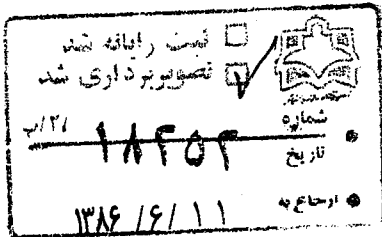 ثبت رایانه شد
تصویربرداری شد
شماره
۱۸۴۵۴
تاریخ
ارجاع به
۱۳۸۶ /۶/ ۱۱